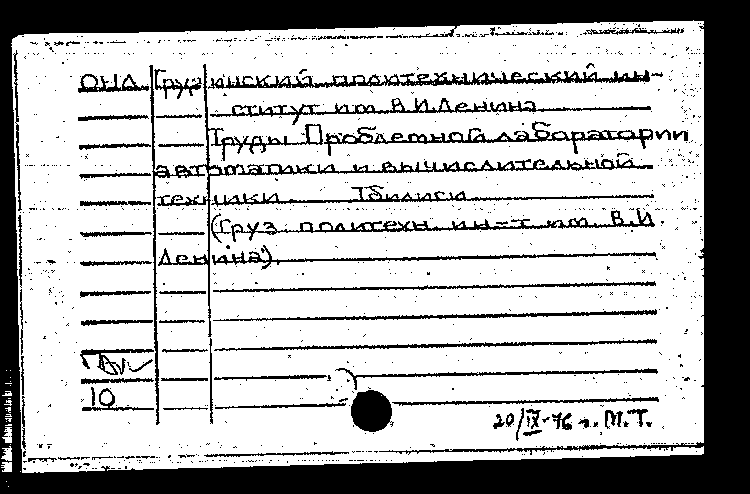 ОНЛ Грузинский политехнический ин-
ститут им. В.И.Ленина
Труды Проблемной лаборатории
автоматики и вычислительной
техники. Тбилиси
(Груз. политехн. ин-т им. В.И.
Ленина).
10
20/IX-76 г. М.Т.